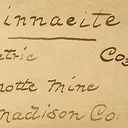 innaeite
etric Co3
notte Mine
madison Co.